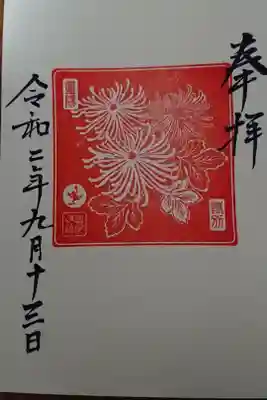 奉拝
令和二年九月十三日